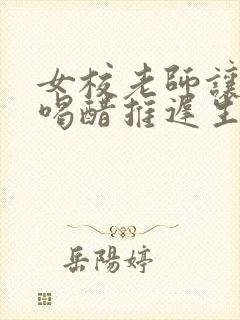 女校老師讓
喝醋推遲生
岳陽婷